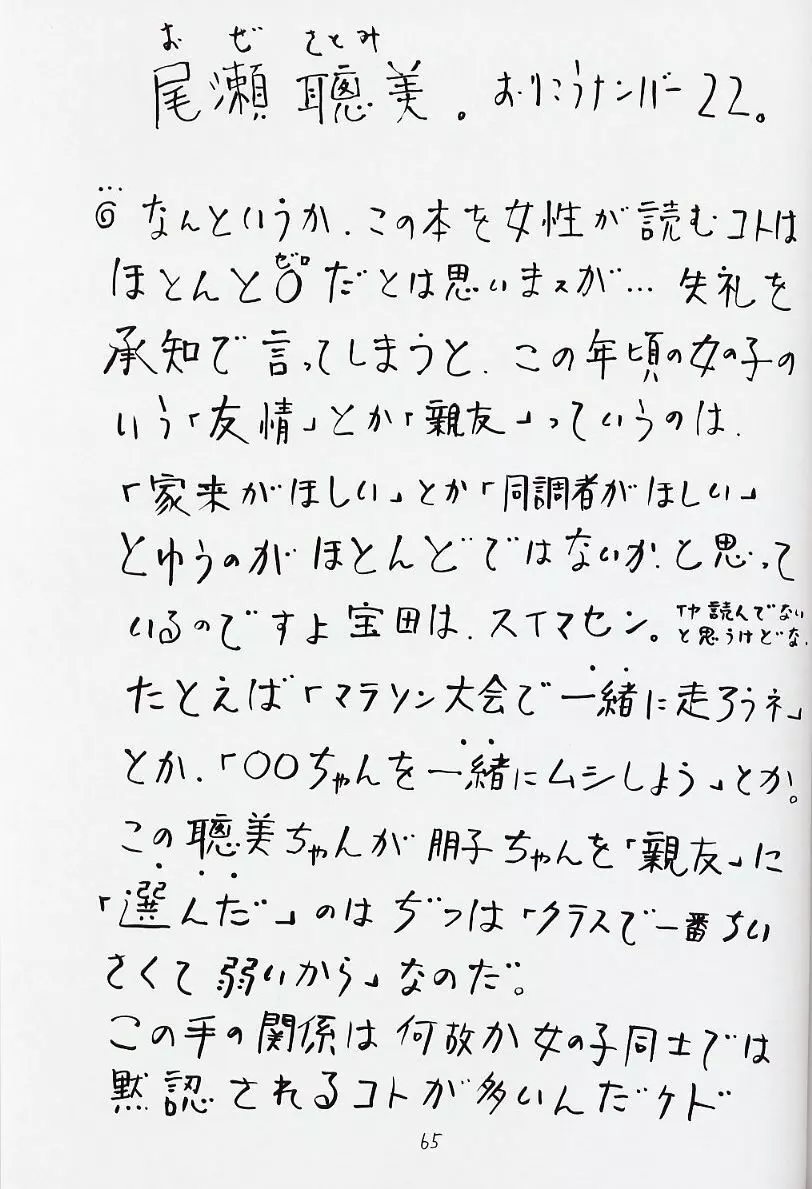 おぜ さとみ
尾瀬 聰美。おりこうナンバー22。
…
◎ なんというか、この本を女性が読むコトは
ゼロ
ほとんど0だとは思いますが…失礼を
承知で言ってしまうと、この年頃の女の子の
いう「友情」とか「親友」っていうのは、
「家来がほしい」とか「同調者がほしい」
とゆうのがほとんどではないか?と思って
いるのですよ宝田は、スイマセン。
読んでない
と思うけどな、
たとえば「マラソン大会で一緒に走ろうネ」
とか、「〇〇ちゃんを一緒にムシしよう」とか。
この聰美ちゃんが朋子ちゃんを「親友」に
「選んだ」のはぢつは「クラスで一番ちい
さくて弱いから」なのだ。
この手の関係は何故か女の子同士では
黙認されるコトが多いんだケド
65